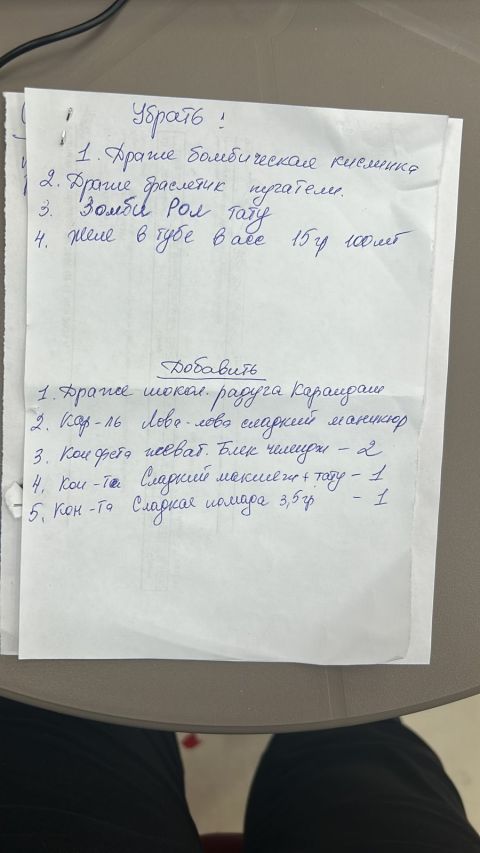 Убрать!
1. Драже бомбическая кислинка
2. Драже браслетик пугатели.
3. Зомби Рол тату
4. Желе в тубе в асс 15гр 100шт
Добавить
1. Драже шокол. радуга Карандаш
2. Кар-ль Лова-лова сладкий маникюр
3. Конфета жеват. Блек челендж - 2
4. Кон-та Сладкий макияж + тату - 1
5. Кон-та Сладкая помада 3,5гр - 1